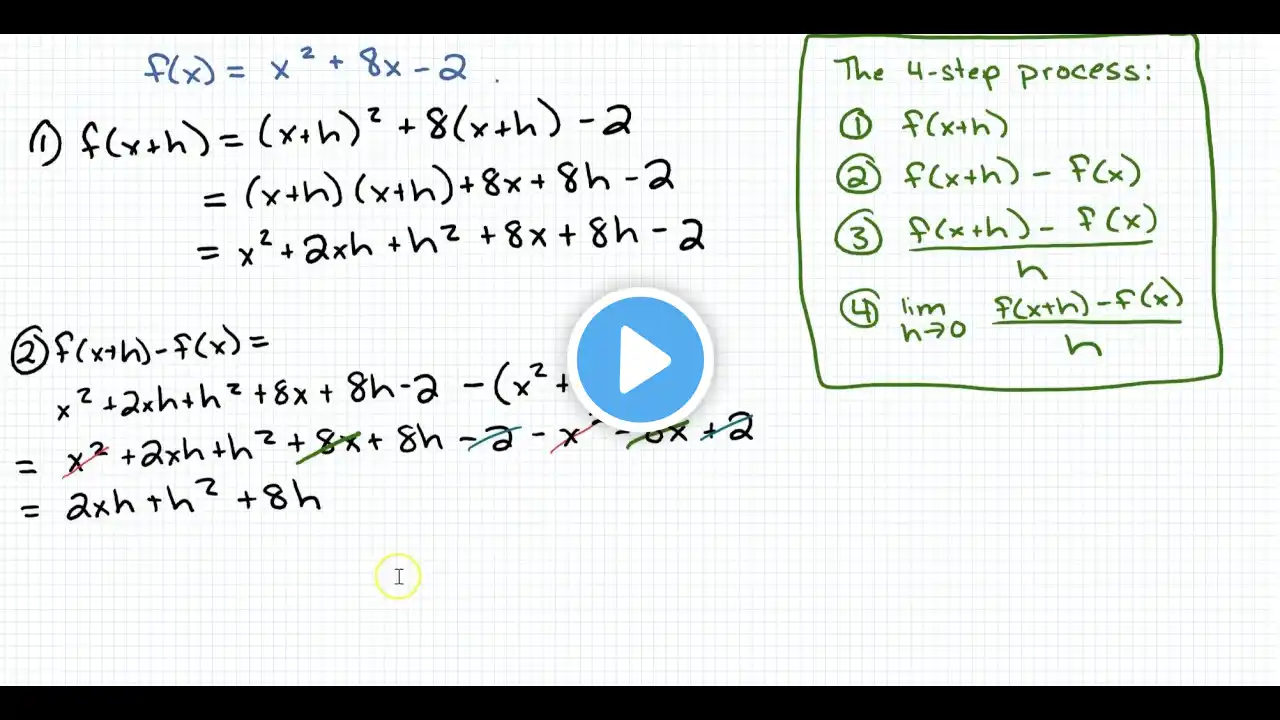 f(x) = x² + 8x - 2 .
① f(x+h) = (x+h)² + 8(x+h) - 2
= (x+h)(x+h) + 8x + 8h - 2
= x² + 2xh + h² + 8x + 8h - 2
② f(x+h) - f(x) =
x² + 2xh + h² + 8x + 8h - 2 - (x² +
= x² + 2xh + h² + 8x + 8h - 2 - x² - 8x + 2
= 2xh + h² + 8h
The 4-step process:
① f(x+h)
② f(x+h) - f(x)
③ f(x+h) - f(x)
h
④ lim h→0 f(x+h) - f(x)
h